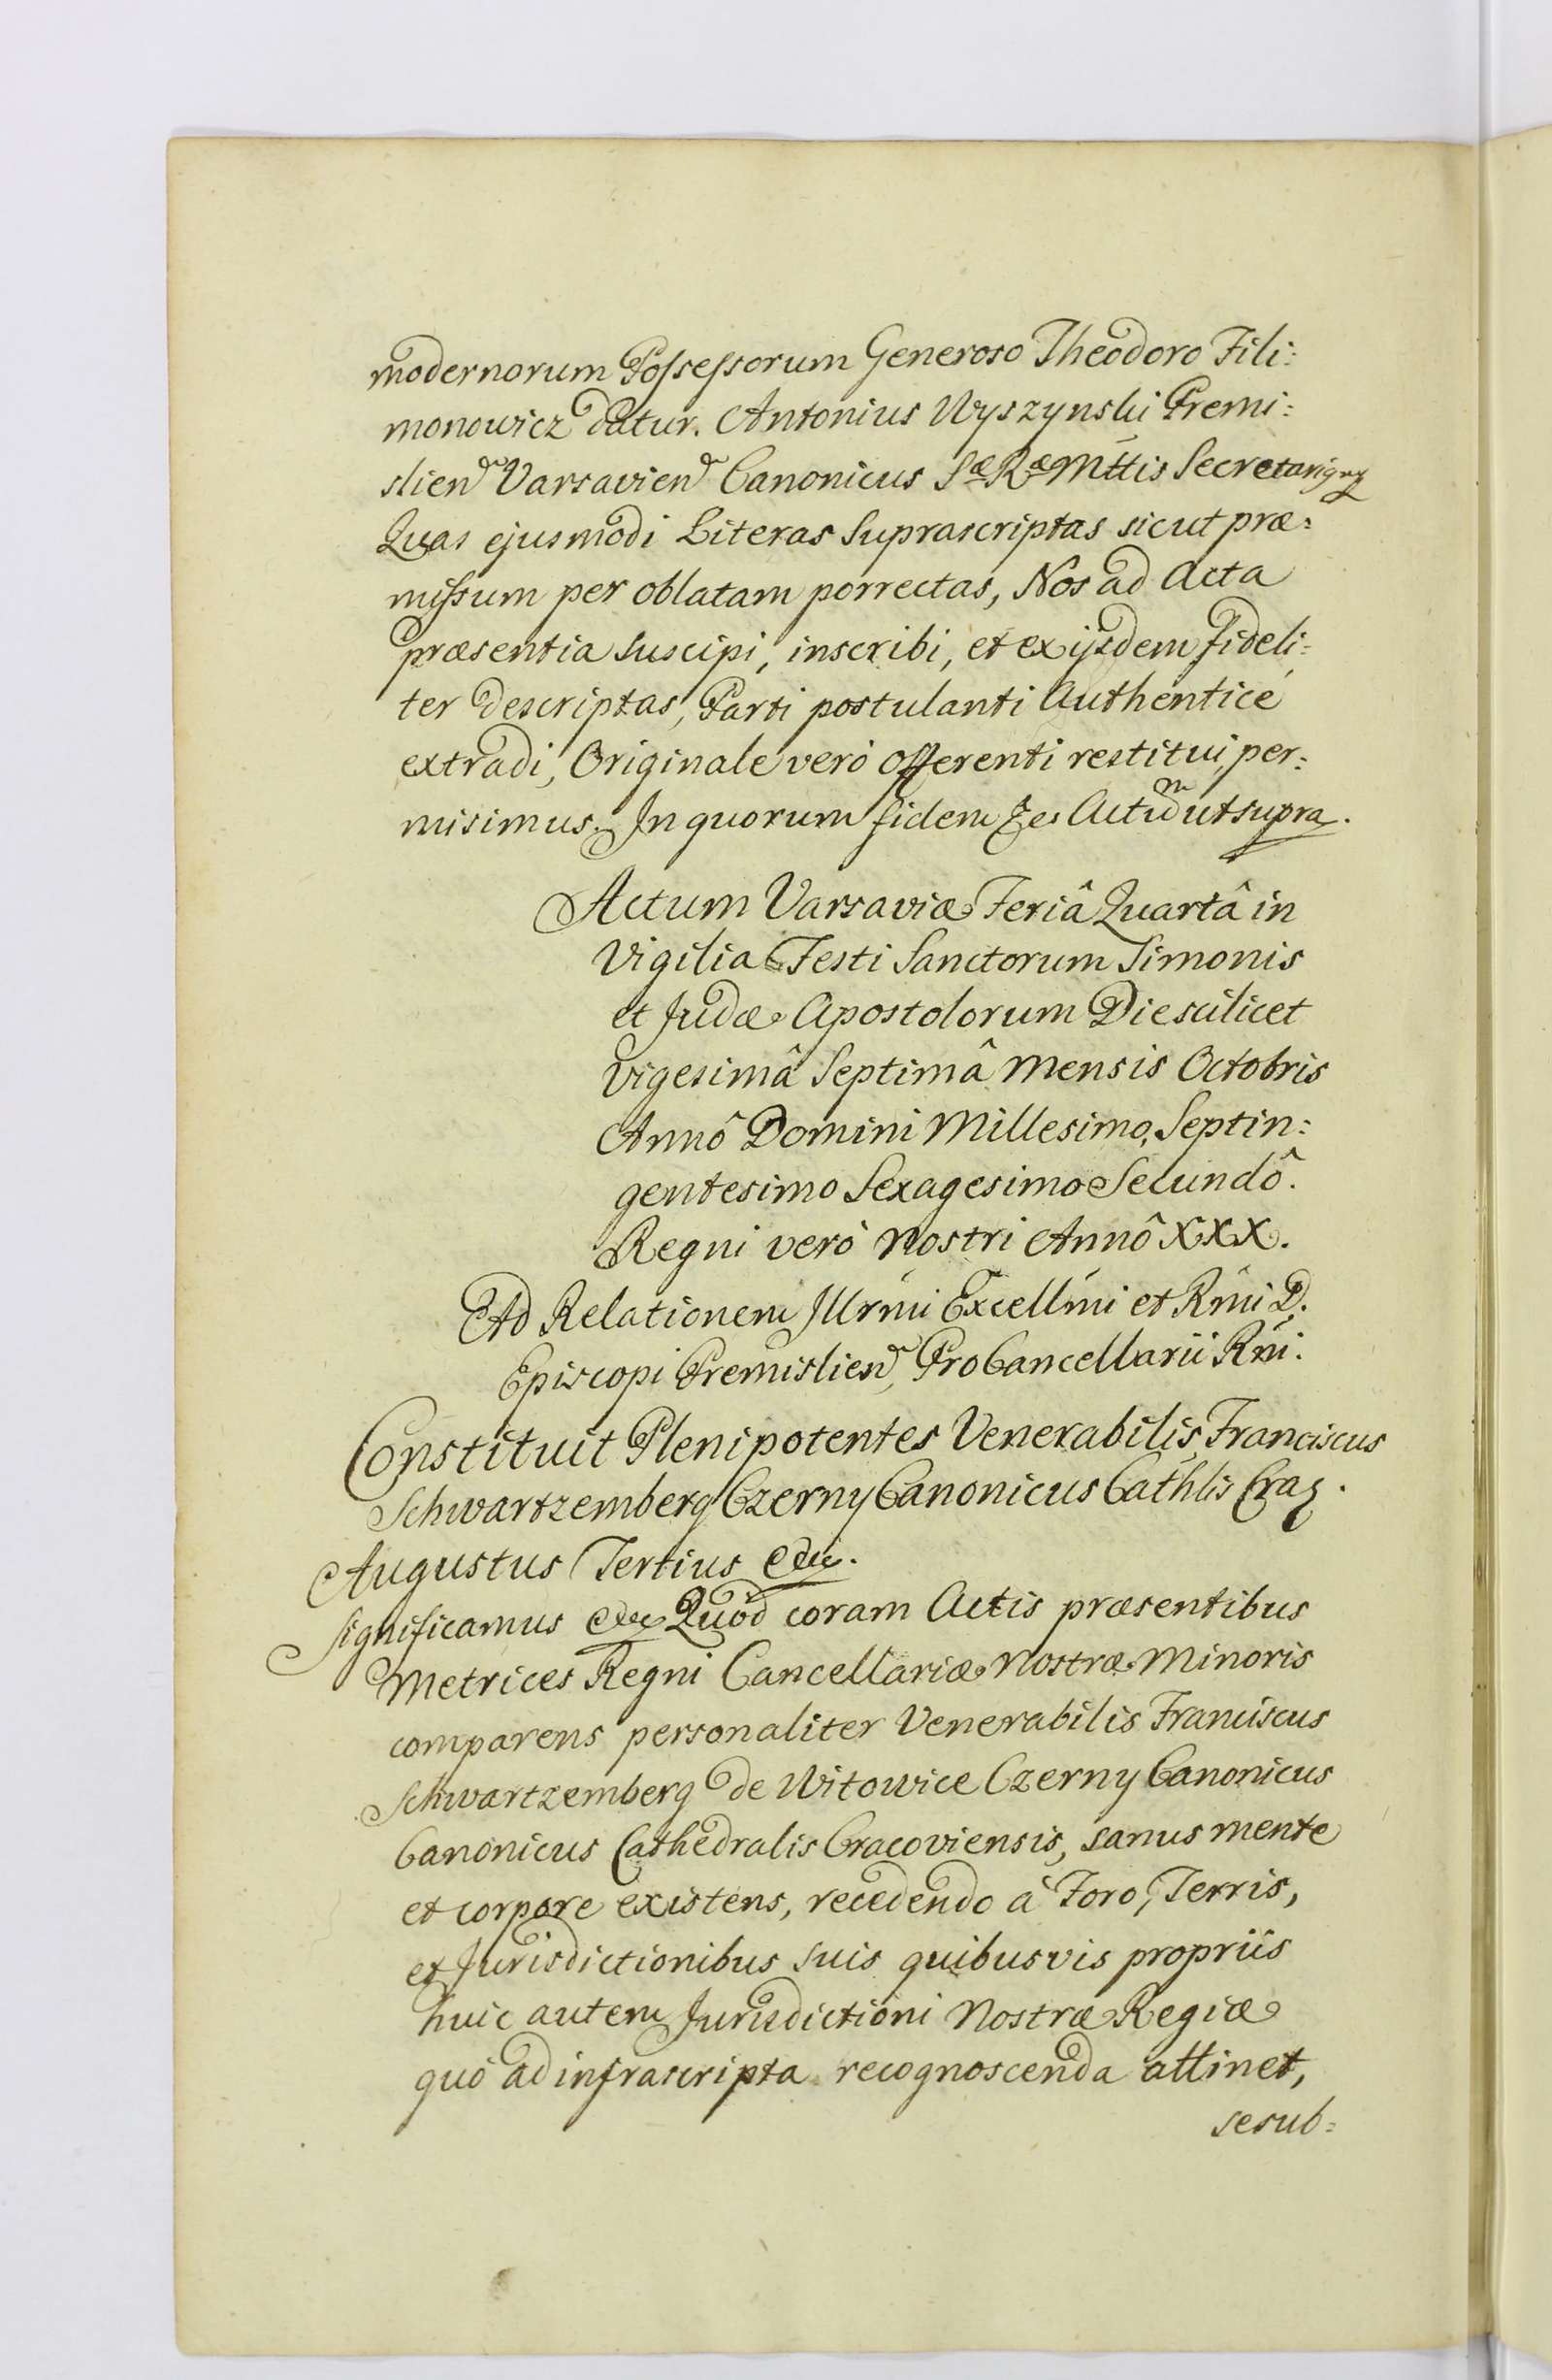 modernorum Possessorum Generoso Theodoro Fili:
monowicz datur. Antonius Wyszynski Premi:
slien Varsavien Canonicus Sæ Ræ Mttis Secretarius
Quas ejusmodi Literas Suprascriptas sicut præ:
missum per oblatam porrectas, Nos ad Acta
præsentia suscipi, inscribi, et ex ijsdem fideli:
ter descriptas, Parti postulanti Authenticé
extradi, Originale verò Offerenti restitui, per:
misimus. In quorum fidem &c. Actum ut supra.
Actum Varsaviæ Feriâ Quartâ in
Vigilia Festi Sanctorum Simonis
et Judæ Apostolorum Die scilicet
Vigesimâ Septimâ Mensis Octobris
Annô Domini Millesimo, Septin:
gentesimo Sexagesimo Secundô.
Regni verò Nostri Annô XXX.
Ad Relationem Illrmi Excellmi et Rmi D.
Episcopi Premislien, ProCancellarii Rni.
Constituit Plenipotentes Venerabilis Franciscus
Schwartzemberg Czerny Canonicus Cathlis Crac.
Augustus Tertius etc.
Significamus etc. Quod coram Actis præsentibus
Metrices Regni Cancellariæ Nostræ Minoris
comparens personaliter Venerabilis Franciscus
Schwartzemberg de Witowice Czerny Canonicus
Canonicus Cathedralis Cracoviensis, sanus mente
et corpore existens, recedendo à Foro, Terris,
et Jurisdictionibus suis quibusvis propriis
huic autem Jurisdictioni Nostræ Regiæ
quò ad infrascripta recognoscenda attinet,
se sub=